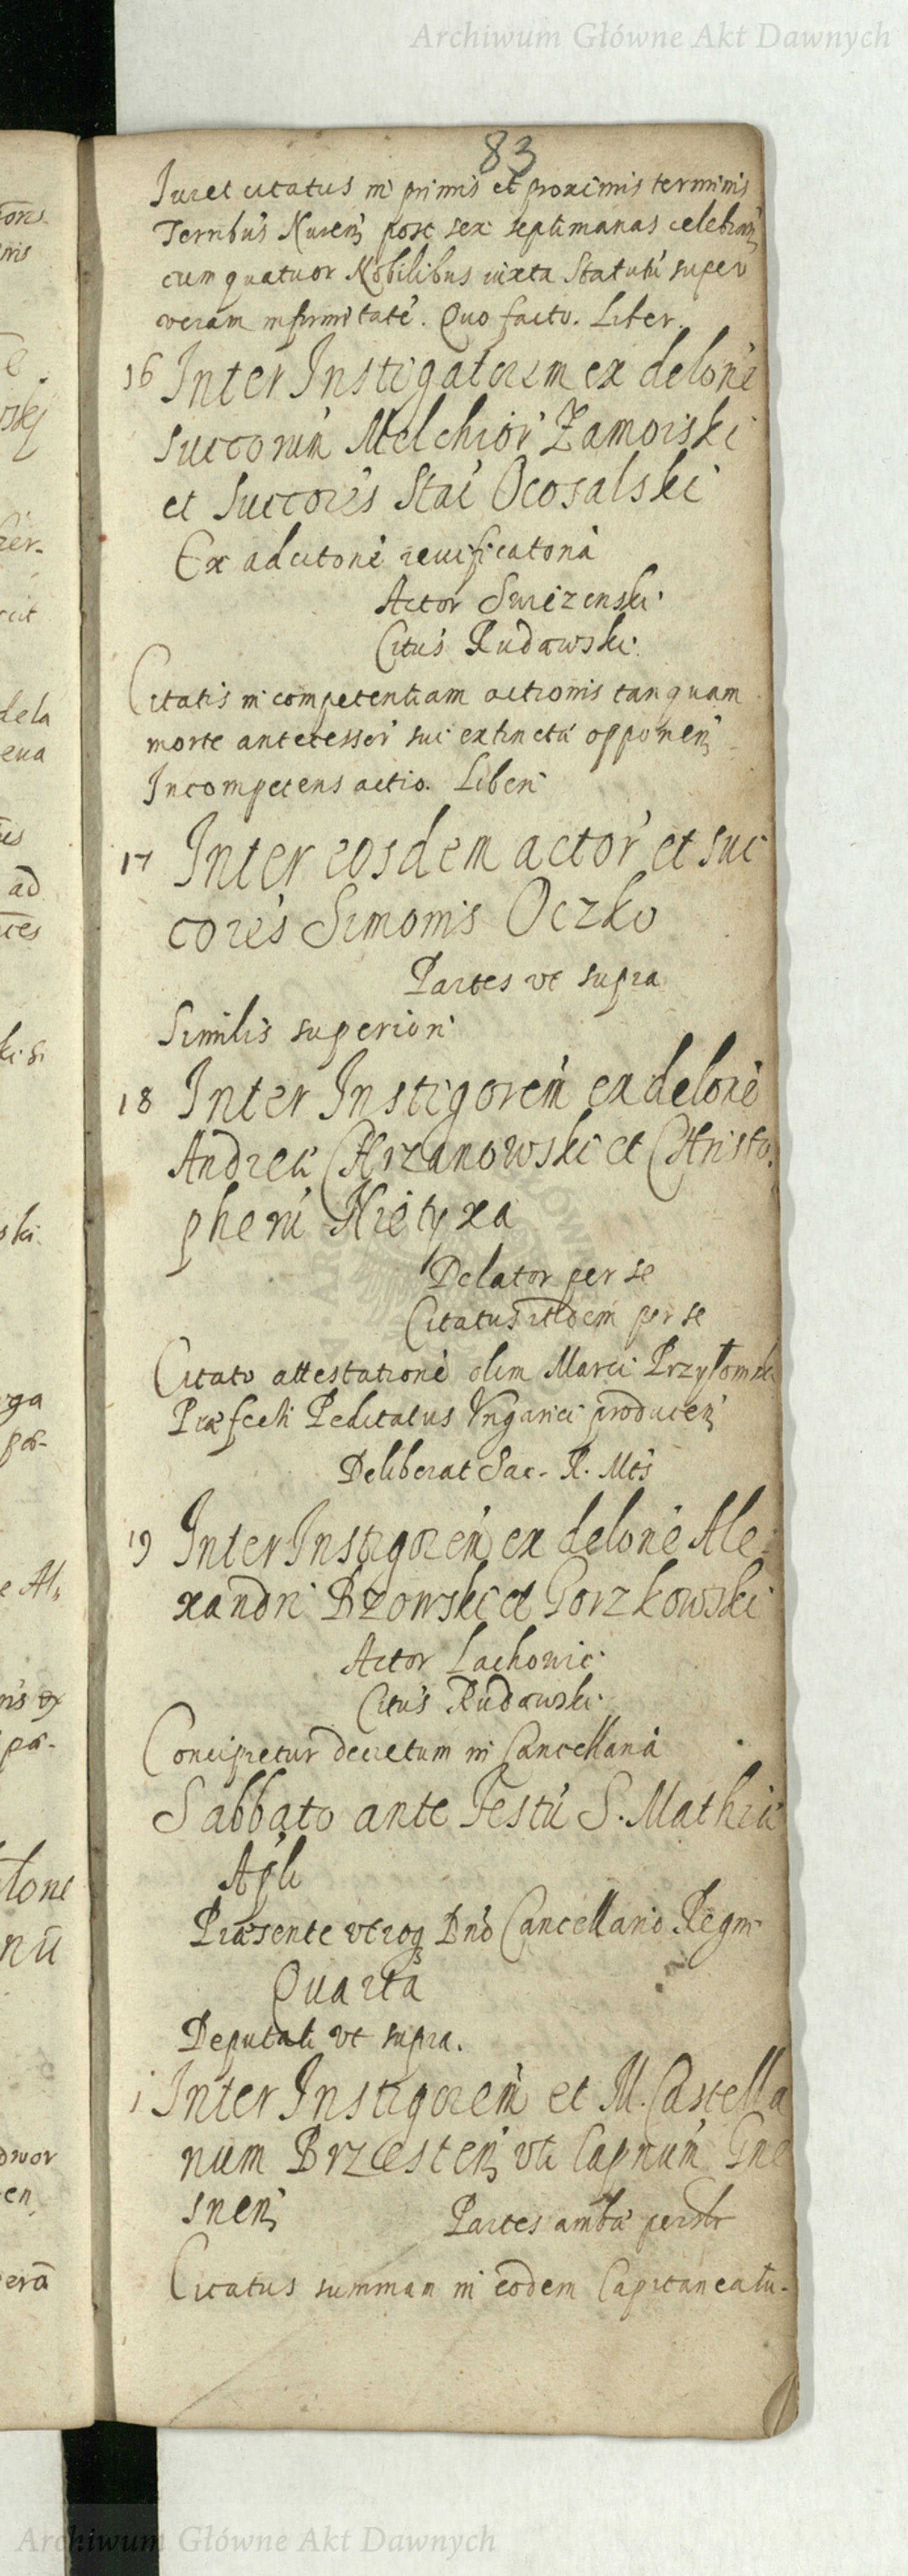 Archiwum Główne Akt Dawnych
83
Juret citatus in primis et proximis terminis
Terribus Nuren post sex septimanas celebran
cum quatuor Nobilibus iuxta Statutu super
veram infirmitate. Quo facto. Liber.
16 Inter Instigatorem ex delone
succorum Melchior Zamoiski
et succores Stai Ocosalski
Ex adcitone reuificatoria
Actor Swiezenski
Citus Rudawski
Citatis incompetentiam actionis tanquam
morte antecessor sui extincta opponen
Incompetens actio. Liberi
17 Inter eosdem actor et suc
cores Simonis Oczko
Partes vt supra
Similis superiori
18 Inter Instigorem ex delone
Andreae Chrzanowski et Christo
pheru Nietyxa
Delator per se
Citatus itidem per se
Citato attestatione olim Marci
Praefecti Peditatus Vngarici producen
Deliberat Sac. R. Mtis
19 Inter Instigorem ex delone Ale
xandri Bzowski et Gorzkowski
Actor Lachowic
Citus Rudawski
Concipietur decretum in Cancellaria
Sabbato ante Festu S. Mathiae
Apli
Praesente vtroq Dno Cancellario Regni
Quarta
Deputati vt supra.
1 Inter Instigorem et M. Castella
num Brzesten vti Capneum Gne
snen
Partes ambae
Citatus summam in eodem Capitaneatu
Archiwum Główne Akt Dawnych